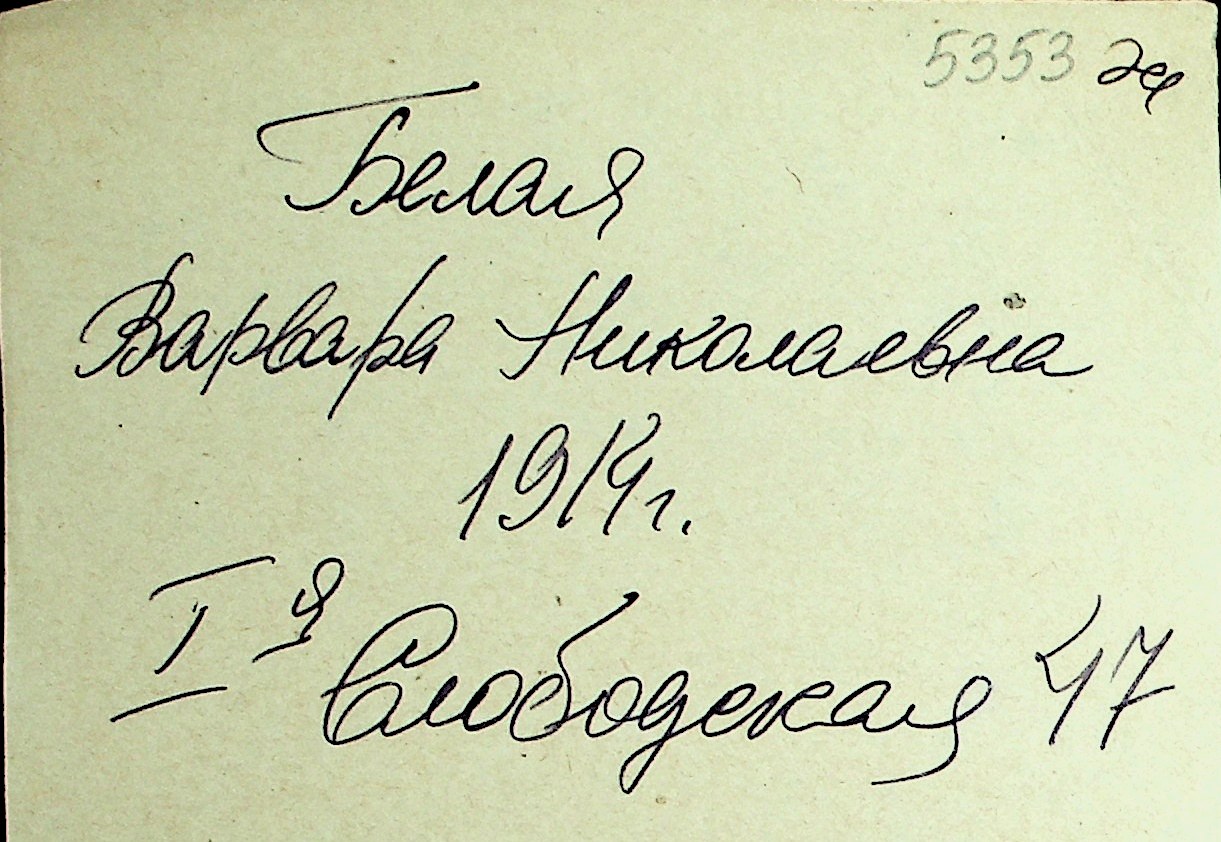 5353 же
Белая
Варвара Николаевна
1914г.
I я Слободская 47